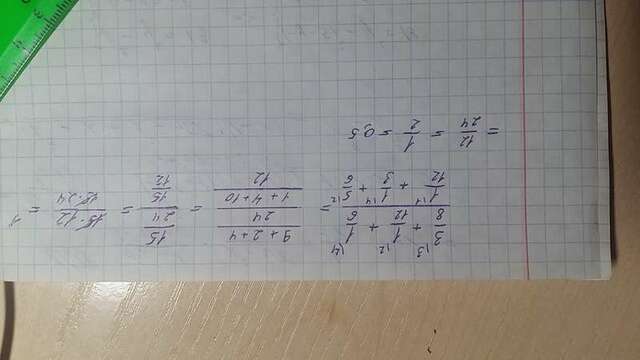 (3/8 \3 + 1/12 \2 + 1/6 \4) / (1/12 \1 + 1/3 \4 + 5/6 \2) = ((9+2+4)/24) / ((1+4+10)/12) = (15/24) / (15/12) = (15·12)/(15·24) = 1
= 12/24 = 1/2 = 0,5